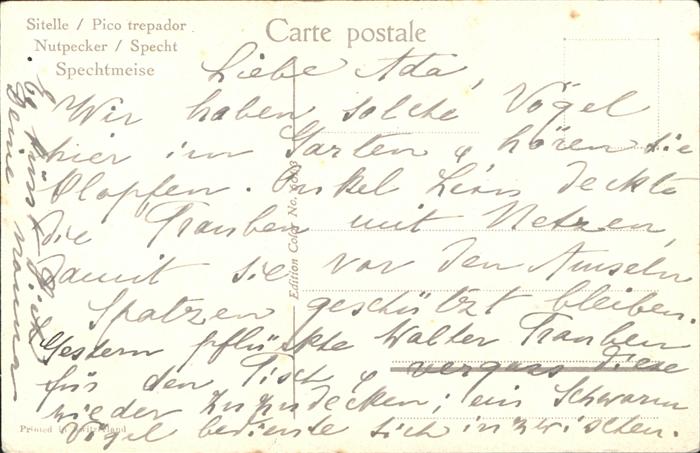 Sitelle / Pico trepador
Nutpecker / Specht
Spechtmeise
Carte postale
Liebe Ada,
Wir haben solche Vögel
hier im Garten & hören sie
klopfen. Onkel Léon deckte
die Trauben mit Netzen,
damit sie vor den Amseln
Spatzen geschützt bleiben.
Gestern pflückte Walter Trauben
für den Tisch & vergass diese
wieder zuzudecken; ein Schwarm
Vögel bediente sich inzwischen.
Es küsst Dich
Deine Mamma
Edition Co No.
Printed in Switzerland